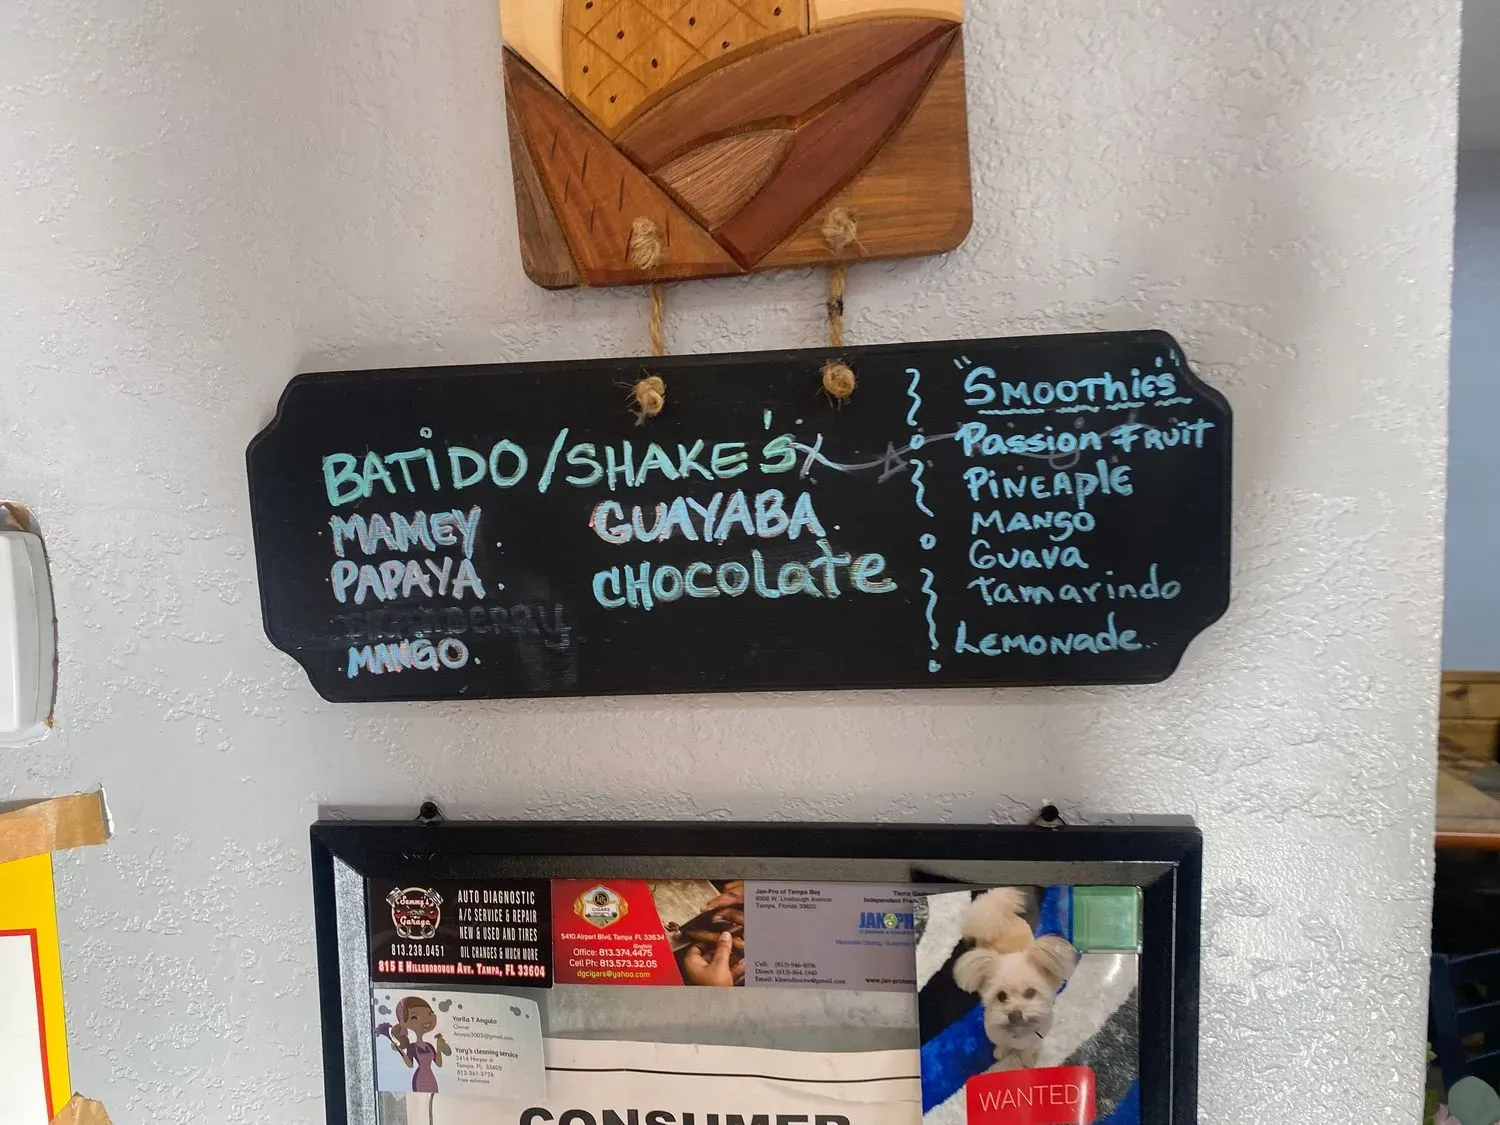 BATIDO/SHAKE'S
MAMEY.
GUAYABA.
PAPAYA.
CHOCOLATE
MANGO.
"SMOOTHIE'S"
PASSION FRUIT
PINEAPPLE
MANGO
GUAVA
TAMARINDO
LEMONADE.
Jammy's
Garage
813.238.0451
AUTO DIAGNOSTIC
A/C SERVICE & REPAIR
NEW & USED AND TIRES
OIL CHANGES & MUCH MORE
815 E HILLSBOROUGH AVE. TAMPA, FL 33604
CIGARS
5410 Airport Blvd, Tampa FL 33634
(English)
Office: 813.374.4475
Cell Ph: 813.573.32.05
dgcigars@yahoo.com
Jan-Pro of Tampa Bay
6908 W. Linebaugh Avenue
Tampa, Florida 33625
Tierra
Independent
JAN PR
Cell: (813)-946-4036
Direct: (813)-864-1940
Yarila T Angulo
Owner
Yary's cleaning service
2416 Harper st
Tampa FL, 33605
813-361-3726
Free estimate
CONSUMER
WANTED